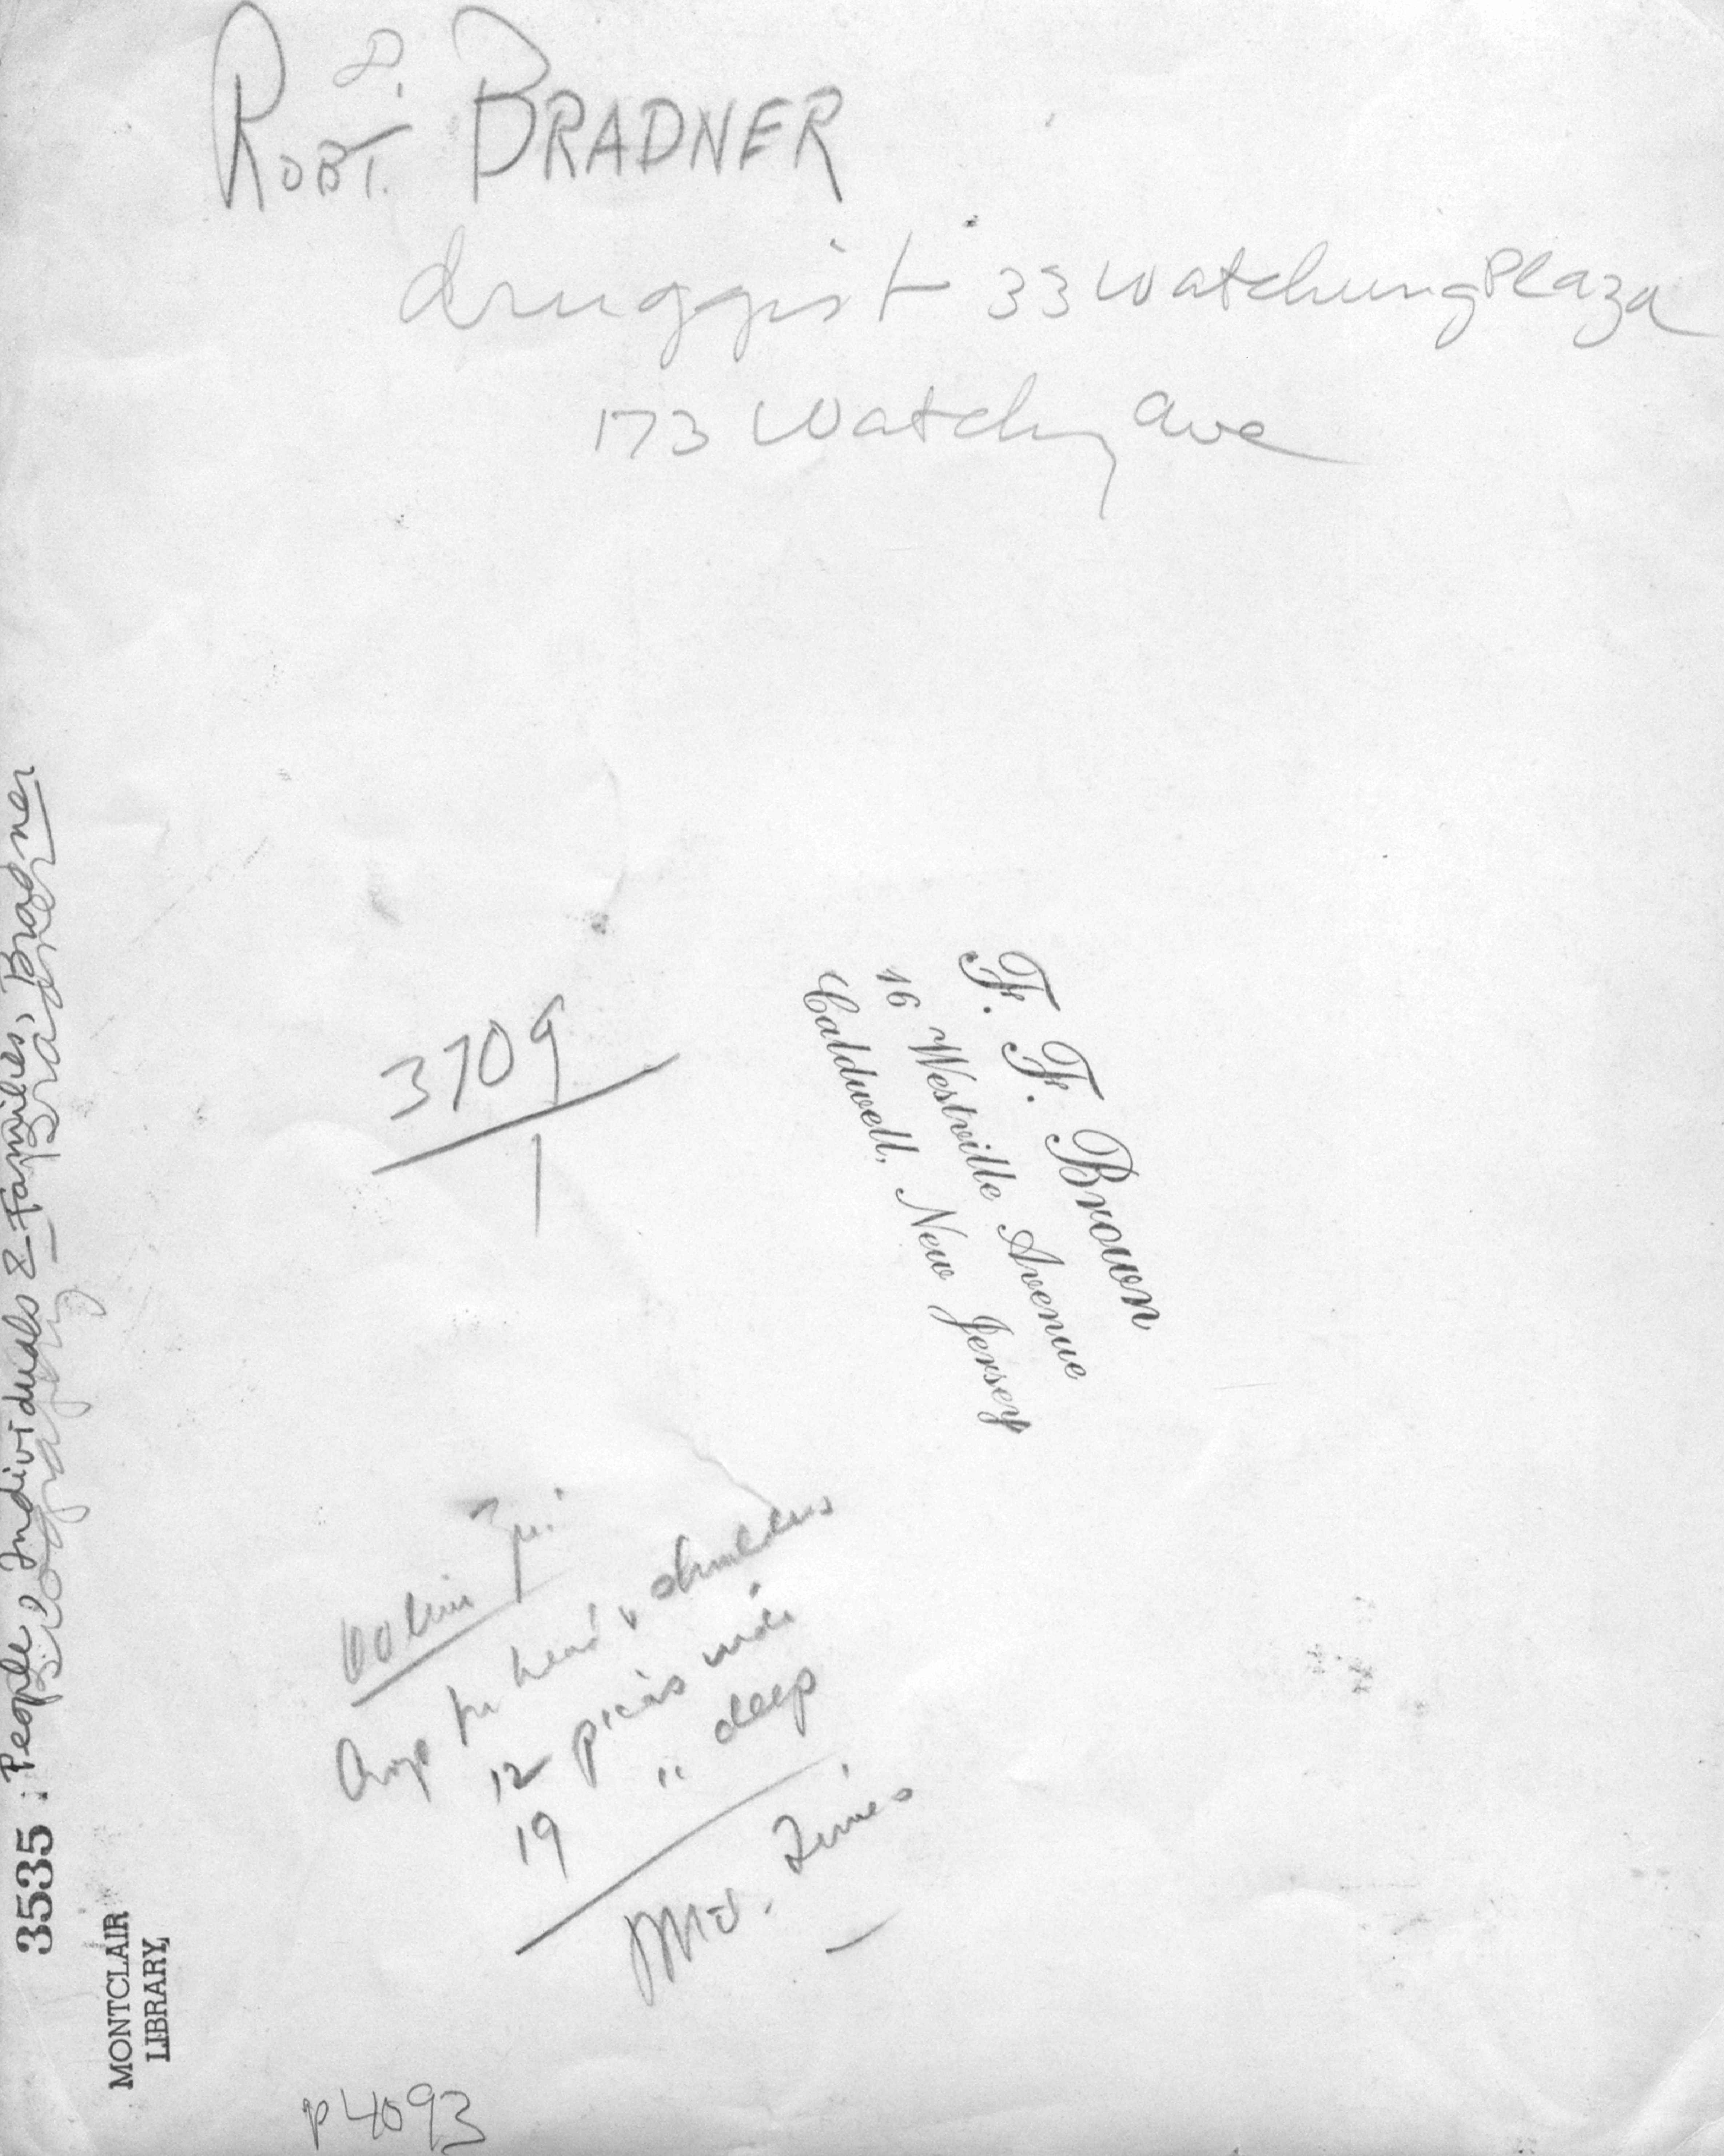 ROBT. P. BRADNER
druggist 33 Watchung Plaza
173 Watchg ave
3709
1
F. F. Brown
16 Westville Avenue
Caldwell, New Jersey
60 line
Crop for head & shoulders
12 picas wide
19 " deep
Mtd. Times
3535 : People, Individuals & Families, Bradner
Biography Bradner
MONTCLAIR
LIBRARY
P4093